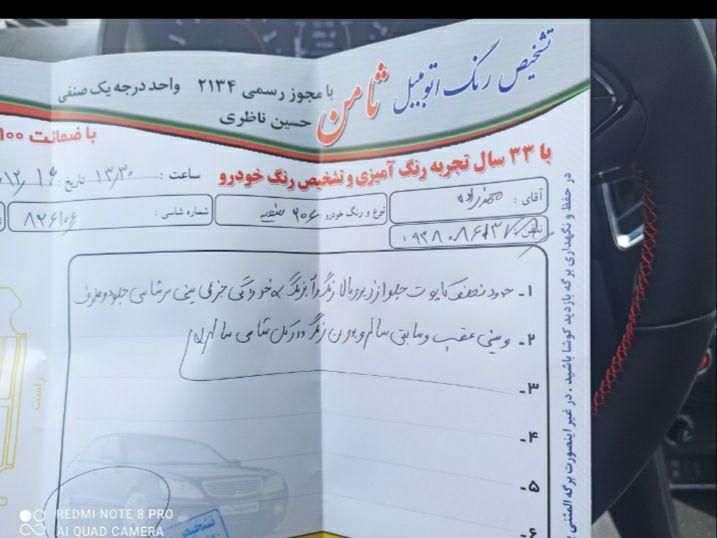 تشخیص رنگ اتومبیل ثامن
با مجوز رسمی ۲۱۳۴ واحد درجه یک صنفی
حسین ناظری
با ضمانت ۱۰۰
با ۳۳ سال تجربه رنگ آمیزی و تشخیص رنگ خودرو
ساعت : ۱۳/۳۰ تاریخ :
آقای :
نوع و رنگ خودرو : ۲۰۶ سفید
شماره شاسی : ۸۲۶۱۰۶
تلفن :
۱- حدود نصف کاپوت جلو از زیر و بالا رنگ و آبرنگ خوردگی جزئی سینی سر شاسی جلو دو طرف
۲- و سینی عقب و مابقی سالم و بدون رنگ و در کل شاسی سالم
۳-
۴-
۵-
۶-
راست
در حفظ و نگهداری برگه بازدید کوشا باشید . در غیر اینصورت برگه المثنی
تشخیص
REDMI NOTE 8 PRO
AI QUAD CAMERA